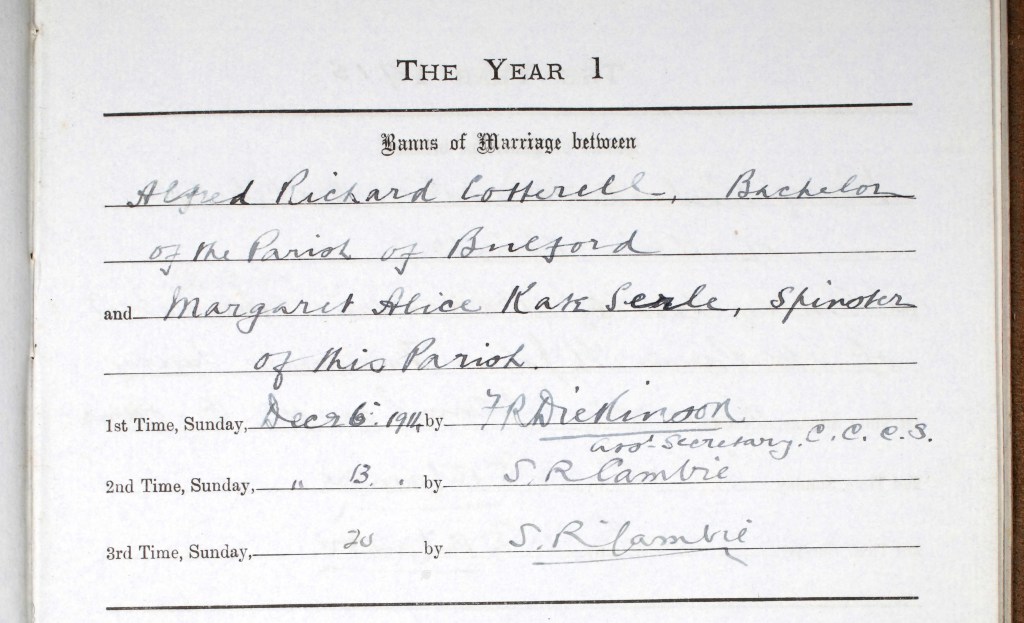 THE YEAR 1
Banns of Marriage between
Alfred Richard Cotterell, Bachelor
of the Parish of Bulford
and Margaret Alice Kate Serle, Spinster
of this Parish.
1st Time, Sunday, Decr 6th 1914 by F R Dickinson
Asst Secretary. C. C. C. S.
2nd Time, Sunday, " 13. . by S. R Cambie
3rd Time, Sunday, 20 by S. R Cambie